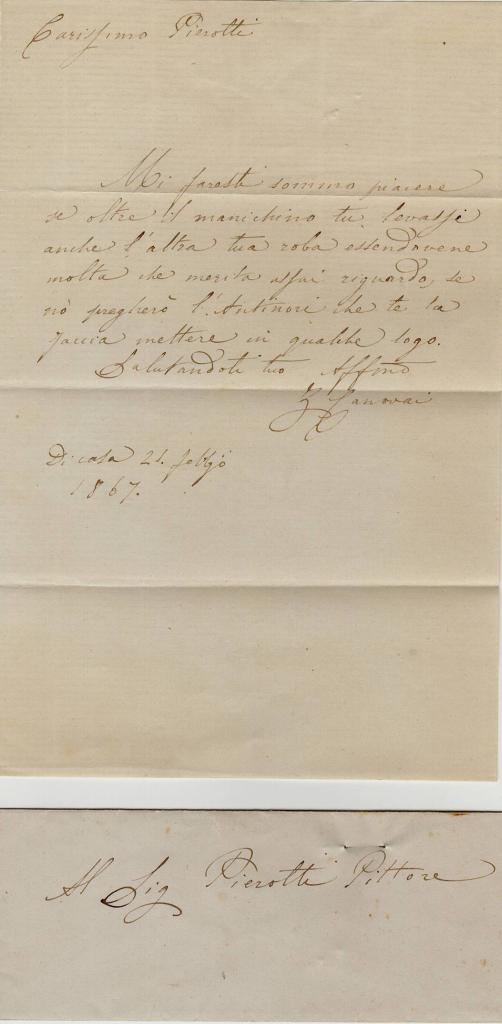 Carissimo Pierotti
Mi faresti sommo piacere
se oltre il manichino tu levassi
anche l'altra tua roba essendovene
molta che merita assai riguardo, se
nò pregherò l'Antinori che te la
faccia mettere in qualche logo.
Salutandoti tuo Affmo
Canovai
Di casa 21. febbjo
1867.
Al Sig Pierotti Pittore